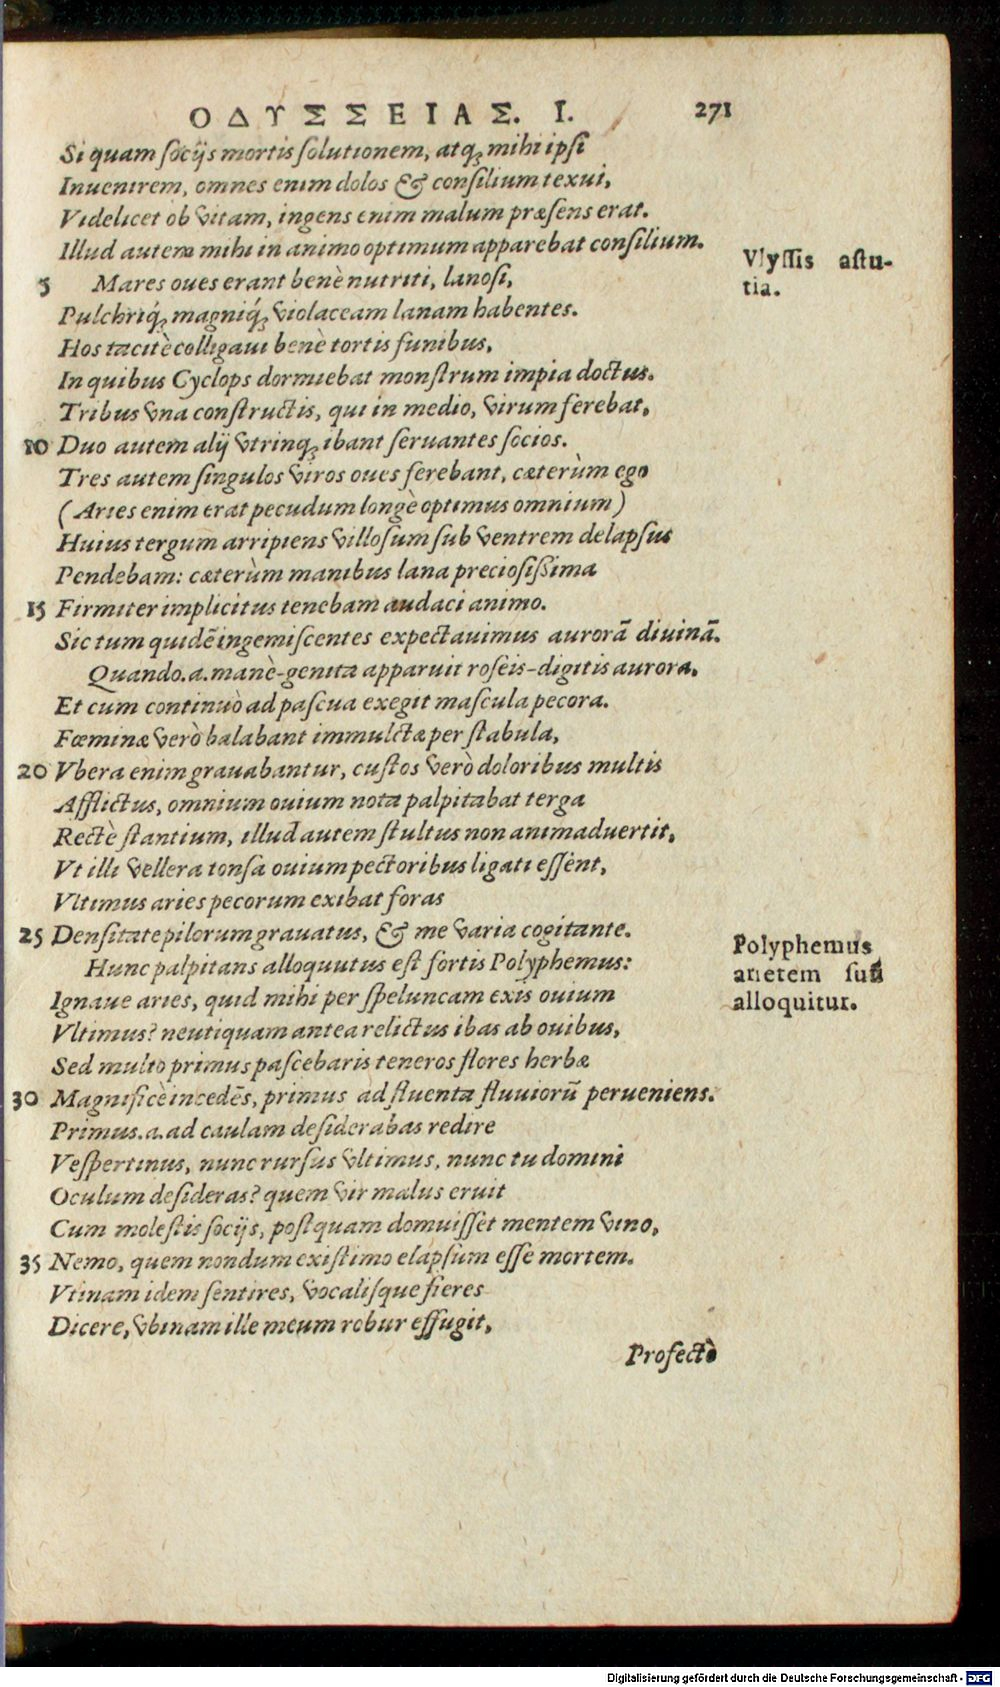 ΟΔΥΣΣΕΙΑΣ. Ι. 271
Si quam socijs mortis solutionem, atq; mihi ipsi
Inuenirem, omnes enim dolos & consilium texui,
Videlicet ob vitam, ingens enim malum præsens erat.
Illud autem mihi in animo optimum apparebat consilium.
Vlyssis astu-
tia.
5 Mares oues erant benè nutriti, lanosi,
Pulchriq́; magniq́; violaceam lanam habentes.
Hos tacitè colligaui benè tortis funibus,
In quibus Cyclops dormiebat monstrum impia doctus.
Tribus vna constructis, qui in medio, virum ferebat,
10 Duo autem alij vtrinq; ibant seruantes socios.
Tres autem singulos viros oues ferebant, cæterùm ego
(Aries enim erat pecudum longè optimus omnium)
Huius tergum arripiens villosum sub ventrem delapsus
Pendebam: cæterùm manibus lana preciosißima
15 Firmiter implicitus tenebam audaci animo.
Sic tum quidē ingemiscentes expectauimus aurorā diuinā.
Quando.a.manè-genita apparuit roseis-digitis aurora,
Et cum continuò ad pascua exegit mascula pecora.
Fœminæ verò balabant immulctæ per stabula,
20 Vbera enim grauabantur, custos verò doloribus multis
Afflictus, omnium ouium nota palpitabat terga
Rectè stantium, illud autem stultus non animaduertit,
Vt illi vellera tonsa ouium pectoribus ligati essent,
Vltimus aries pecorum exibat foras
25 Densitate pilorum grauatus, & me varia cogitante.
Hunc palpitans alloquutus est fortis Polyphemus:
Polyphemus
arietem suū
alloquitur.
Ignaue aries, quid mihi per speluncam exis ouium
Vltimus? neutiquam antea relictus ibas ab ouibus,
Sed multo primus pascebaris teneros flores herbæ
30 Magnificè incedēs, primus ad fluenta fluuiorū perueniens.
Primus.a.ad caulam desiderabas redire
Vespertinus, nunc rursus vltimus, nunc tu domini
Oculum desideras? quem vir malus eruit
Cum molestis socijs, postquam domuisset mentem vino,
35 Nemo, quem nondum existimo elapsum esse mortem.
Vtinam idem sentires, vocalisque fieres
Dicere, vbinam ille meum robur effugit,
Profectò
Digitalisierung gefördert durch die Deutsche Forschungsgemeinschaft - DFG